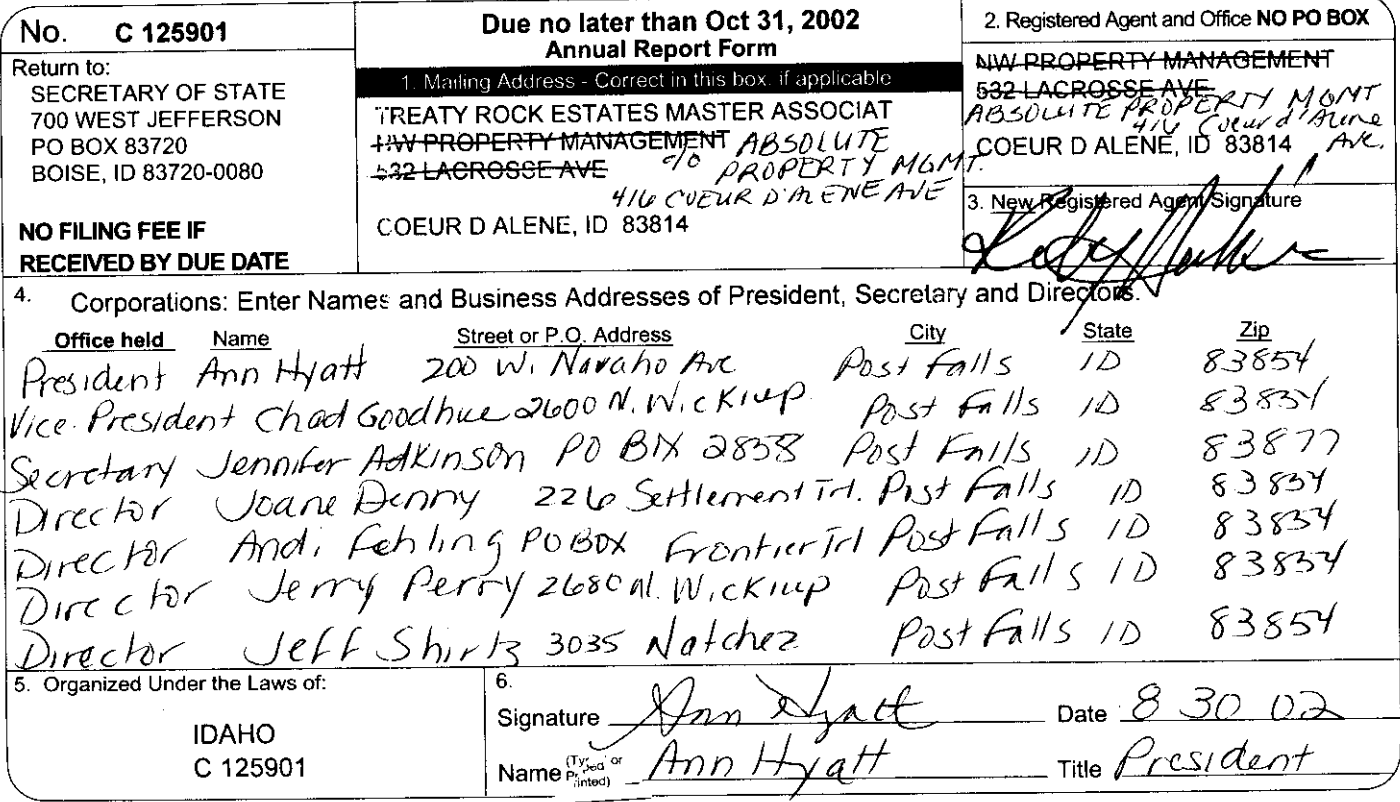 No. C 125901
Return to:
SECRETARY OF STATE
700 WEST JEFFERSON
PO BOX 83720
BOISE, ID 83720-0080
NO FILING FEE IF
RECEIVED BY DUE DATE
Due no later than Oct 31, 2002
Annual Report Form
1. Mailing Address - Correct in this box, if applicable
TREATY ROCK ESTATES MASTER ASSOCIAT
NW PROPERTY MANAGEMENT ABSOLUTE
532 LACROSSE AVE c/o PROPERTY MGMT.
416 COEUR D'ALENE AVE
COEUR D ALENE, ID 83814
2. Registered Agent and Office NO PO BOX
NW PROPERTY MANAGEMENT
532 LACROSSE AVE
ABSOLUTE PROPERTY MGMT
416 Coeur d'Alene Ave.
COEUR D ALENE, ID 83814
3. New Registered Agent Signature
4. Corporations: Enter Names and Business Addresses of President, Secretary and Directors.
Office held Name Street or P.O. Address City State Zip
President Ann Hyatt 200 W. Navaho Ave Post Falls ID 83854
Vice President Chad Goodhue 2600 N. Wickiup Post Falls ID 83854
Secretary Jennifer Adkinson PO BOX 2858 Post Falls ID 83877
Director Joane Denny 226 Settlement Trl. Post Falls ID 83854
Director Andi Fehling PO BOX Frontier Trl Post Falls ID 83854
Director Jerry Perry 2680 N. Wickiup Post Falls ID 83854
Director Jeff Shirtz 3035 Natchez Post Falls ID 83854
5. Organized Under the Laws of:
IDAHO
C 125901
6.
Signature Ann Hyatt Date 8 30 02
Name (Typed or Printed) Ann Hyatt Title President